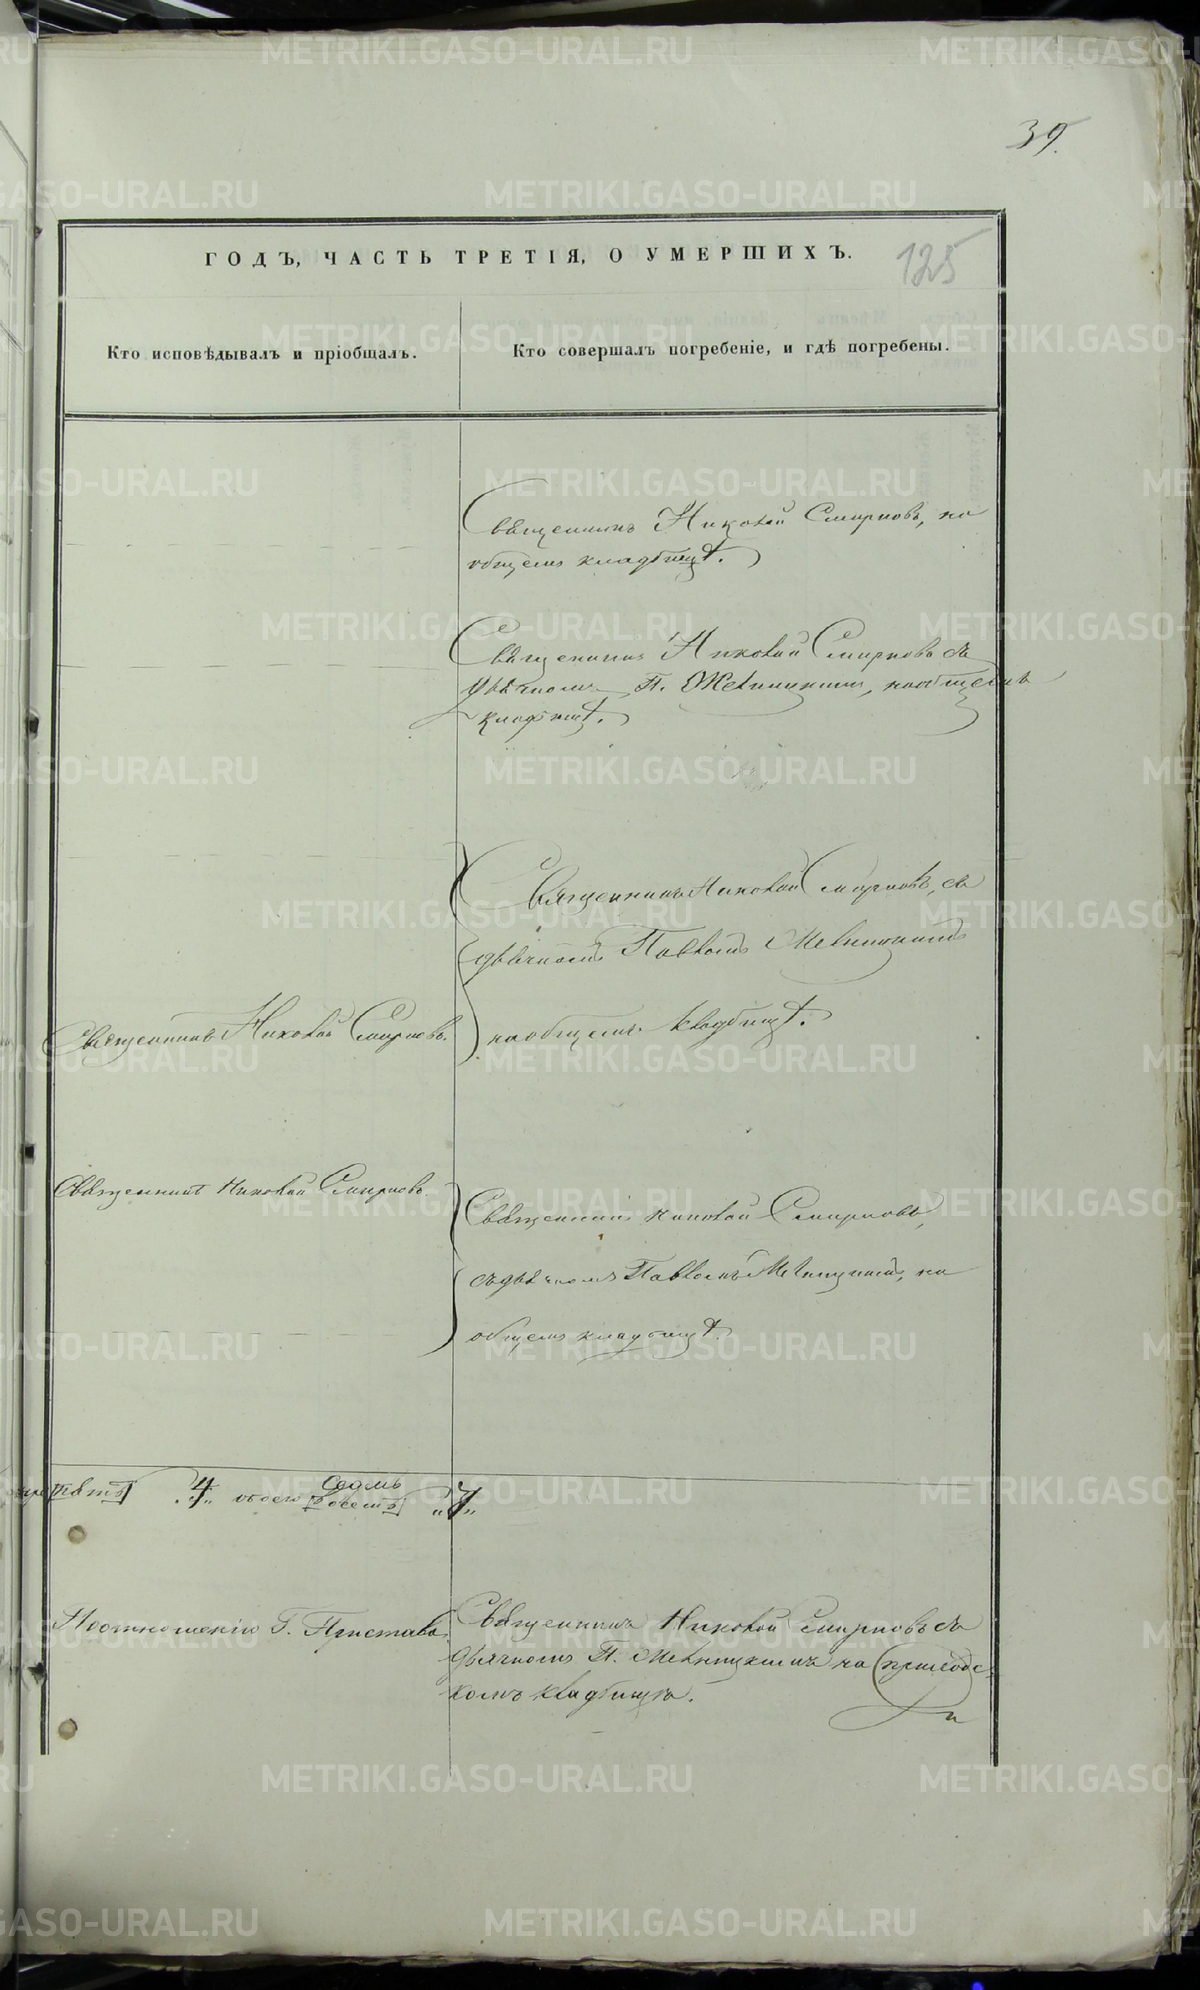 39.
125
ГОДЪ, ЧАСТЬ ТРЕТІЯ, О УМЕРШИХЪ.
Кто исповѣдывалъ и пріобщалъ.
Кто совершалъ погребеніе, и гдѣ погребены.
Священникъ Николай Смирновъ, на
общемъ кладбищѣ.
Священникъ Николай Смирновъ съ
дьячкомъ П. на общемъ
кладбищѣ.
Священникъ Николай Смирновъ, съ
дьячкомъ Павломъ
на общемъ кладбищѣ.
Священникъ Николай Смирновъ.
Священникъ Николай Смирновъ.
Священникъ Николай Смирновъ,
съ дьячкомъ Павломъ на
общемъ кладбищѣ.
"4" обоего седмь "7"
По отношенію Г. Пристава
Священникъ Николай Смирновъ съ
дьячкомъ П. на приходс-
комъ кладбищѣ.
METRIKI.GASO-URAL.RU